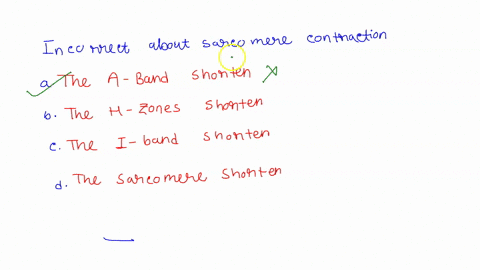 Incorrect about sarcomere contraction
a. The A-Band Shorten
b. The H-Zones Shorten
c. The I-band shorten
d. The Sarcomere Shorten